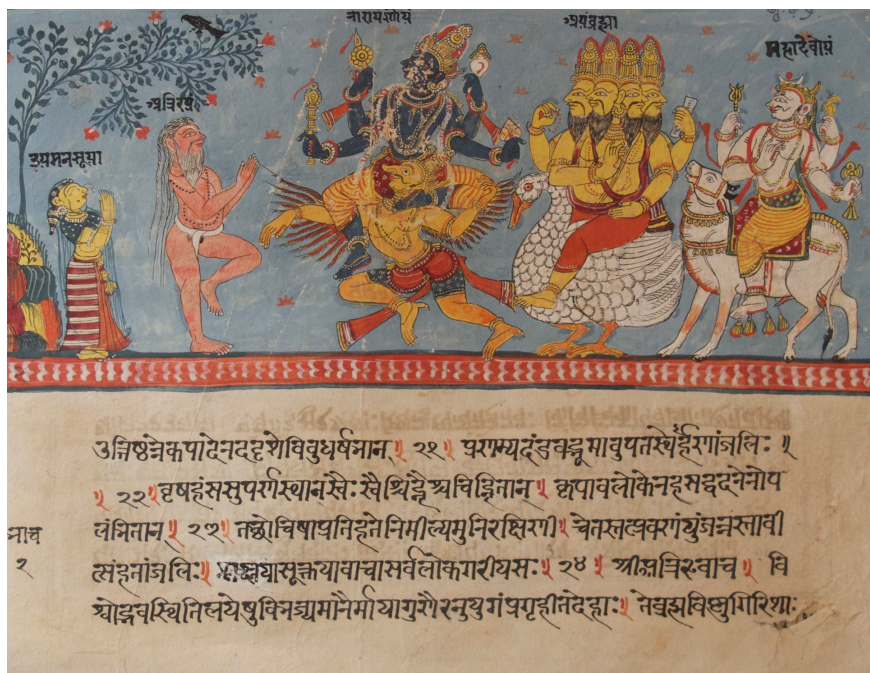 नारायणोयं
अयंब्रह्मा
महादेवोयं
अत्रिरयं
इयमनसूया
उत्तिष्ठन्नेकपादेनददृशेविबुधर्षभान्॥ २१॥ प्रणम्यदंडवद्भूमावुपतस्थेर्हणांजलिः॥
॥ २२॥ वृषहंससुपर्णस्थान्स्वैःस्वैश्चिह्नैश्चचिह्नितान्॥ कृपावलोकेनहसद्वदनेनोप
लंभितान्॥ २३॥ तद्रोचिषाप्रतिहतेनिमील्यमुनिरक्षिणी॥ चेतस्तत्प्रवणंयुंजन्नस्तावी
त्संहतांजलिः॥ श्लक्ष्णयासूक्तयावाचासर्वलोकगरीयसः॥ २४॥ श्रीअत्रिरुवाच॥ वि
श्वोद्भवस्थितिलयेषुविभज्यमानैर्मायागुणैरनुयुगंप्रगृहीतदेहाः॥ तेब्रह्मविष्णुगिरिशाः
भाच
२